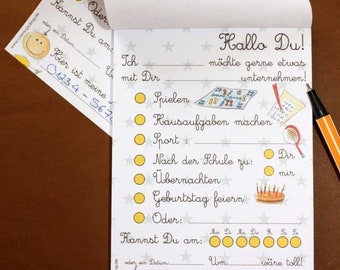 oder
Kannst Du am:
oder ein Datum
Hier ist meine
01234 - 567
Hallo Du!
Ich möchte gerne etwas
mit Dir unternehmen!
Spielen
Hausaufgaben machen
Sport :
Nach der Schule zu: Dir
mir
Übernachten
Geburtstag feiern
Oder:
Mo Di Mi Do Fr Sa So
Kannst Du am:
oder ein Datum Um wäre toll!